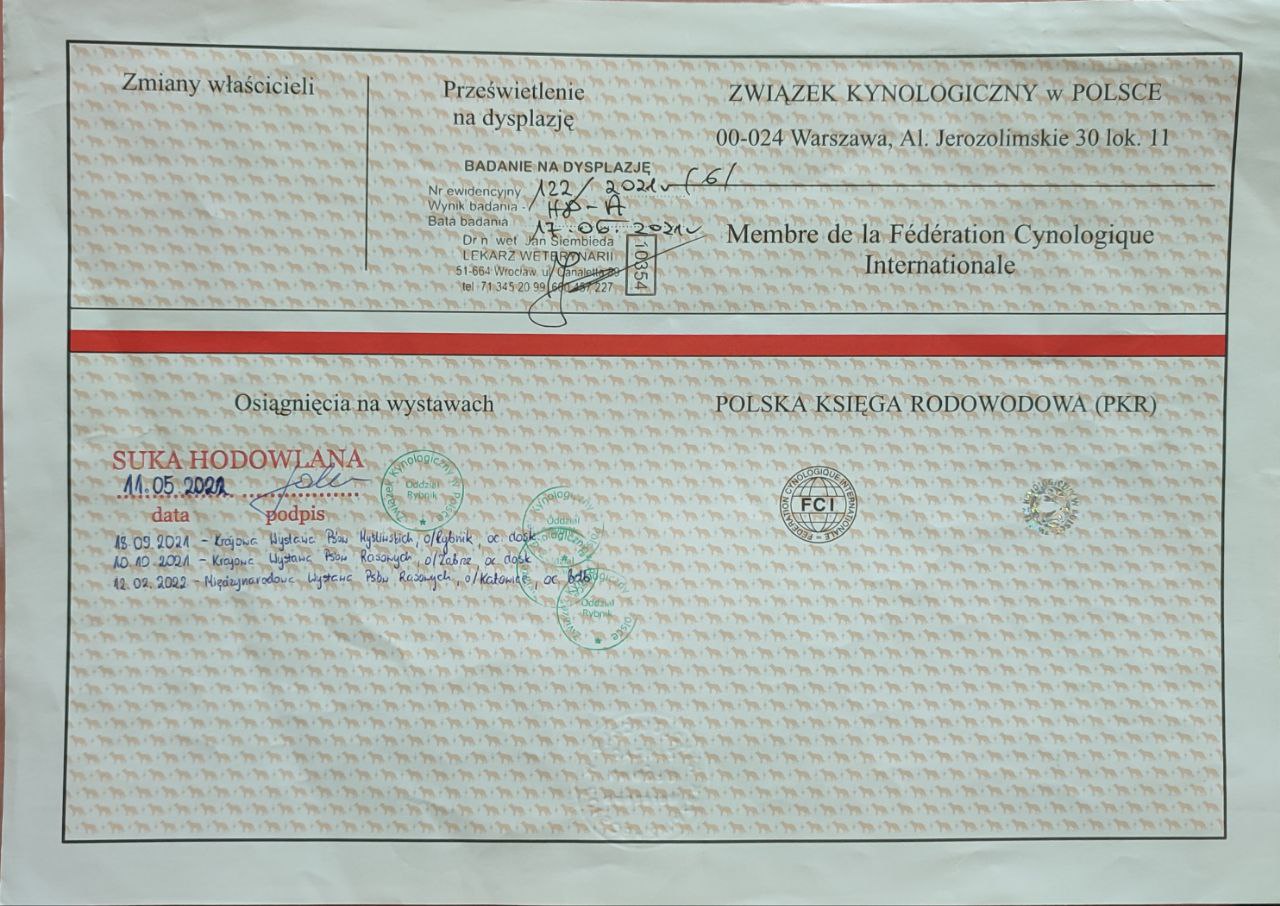 Zmiany właścicieli
Prześwietlenie
na dysplazję
BADANIE NA DYSPLAZJĘ
Nr ewidencyjny 122/2021r (6/
Wynik badania - HD-A
Bata badania 17.06.2021r
Dr n wet Jan Siembieda
LEKARZ WETERYNARII
51-664 Wrocław ul Canaletta
tel 71 345 20 99 227
10354
ZWIĄZEK KYNOLOGICZNY w POLSCE
00-024 Warszawa, Al. Jerozolimskie 30 lok. 11
Membre de la Fédération Cynologique
Internationale
Osiągnięcia na wystawach
SUKA HODOWLANA
11.05.2022
data podpis
Związek Kynologiczny w Polsce
Oddział
Rybnik
18.09.2021 - Krajowa Wystawa Psów Myśliwskich, o/Rybnik, oc. dosk.
10.10.2021 - Krajowa Wystawa Psów Rasowych, o/Zabrze, oc dosk
12.02.2022 - Międzynarodowa Wystawa Psów Rasowych, o/Katowice, oc bdb
Kynologiczny
Oddział
Oddział
Rybnik
POLSKA KSIĘGA RODOWODOWA (PKR)
FEDERATION CYNOLOGIQUE INTERNATIONALE
FCI